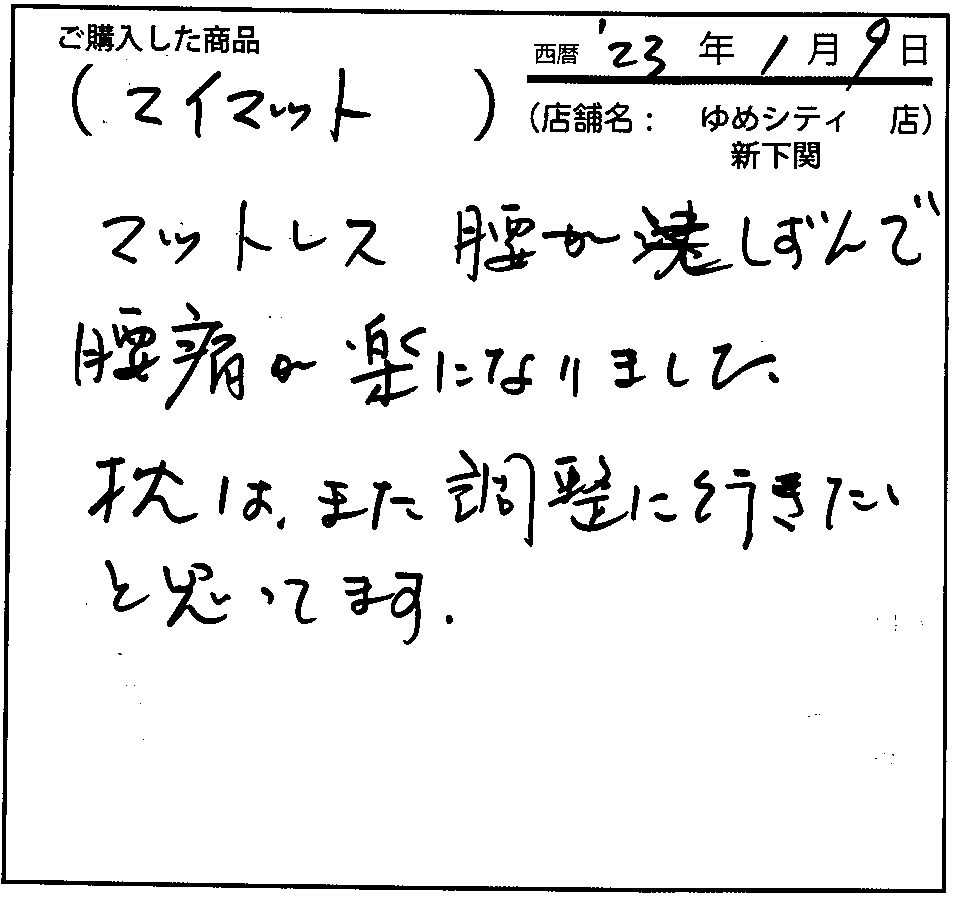 ご購入した商品
西暦 '23 年 1 月 9 日
(マイマット)
(店舗名: ゆめシティ 店)
新下関
マットレス 腰が しずんで
腰痛が楽になりました。
枕は、また調整に行きたい
と思ってます.